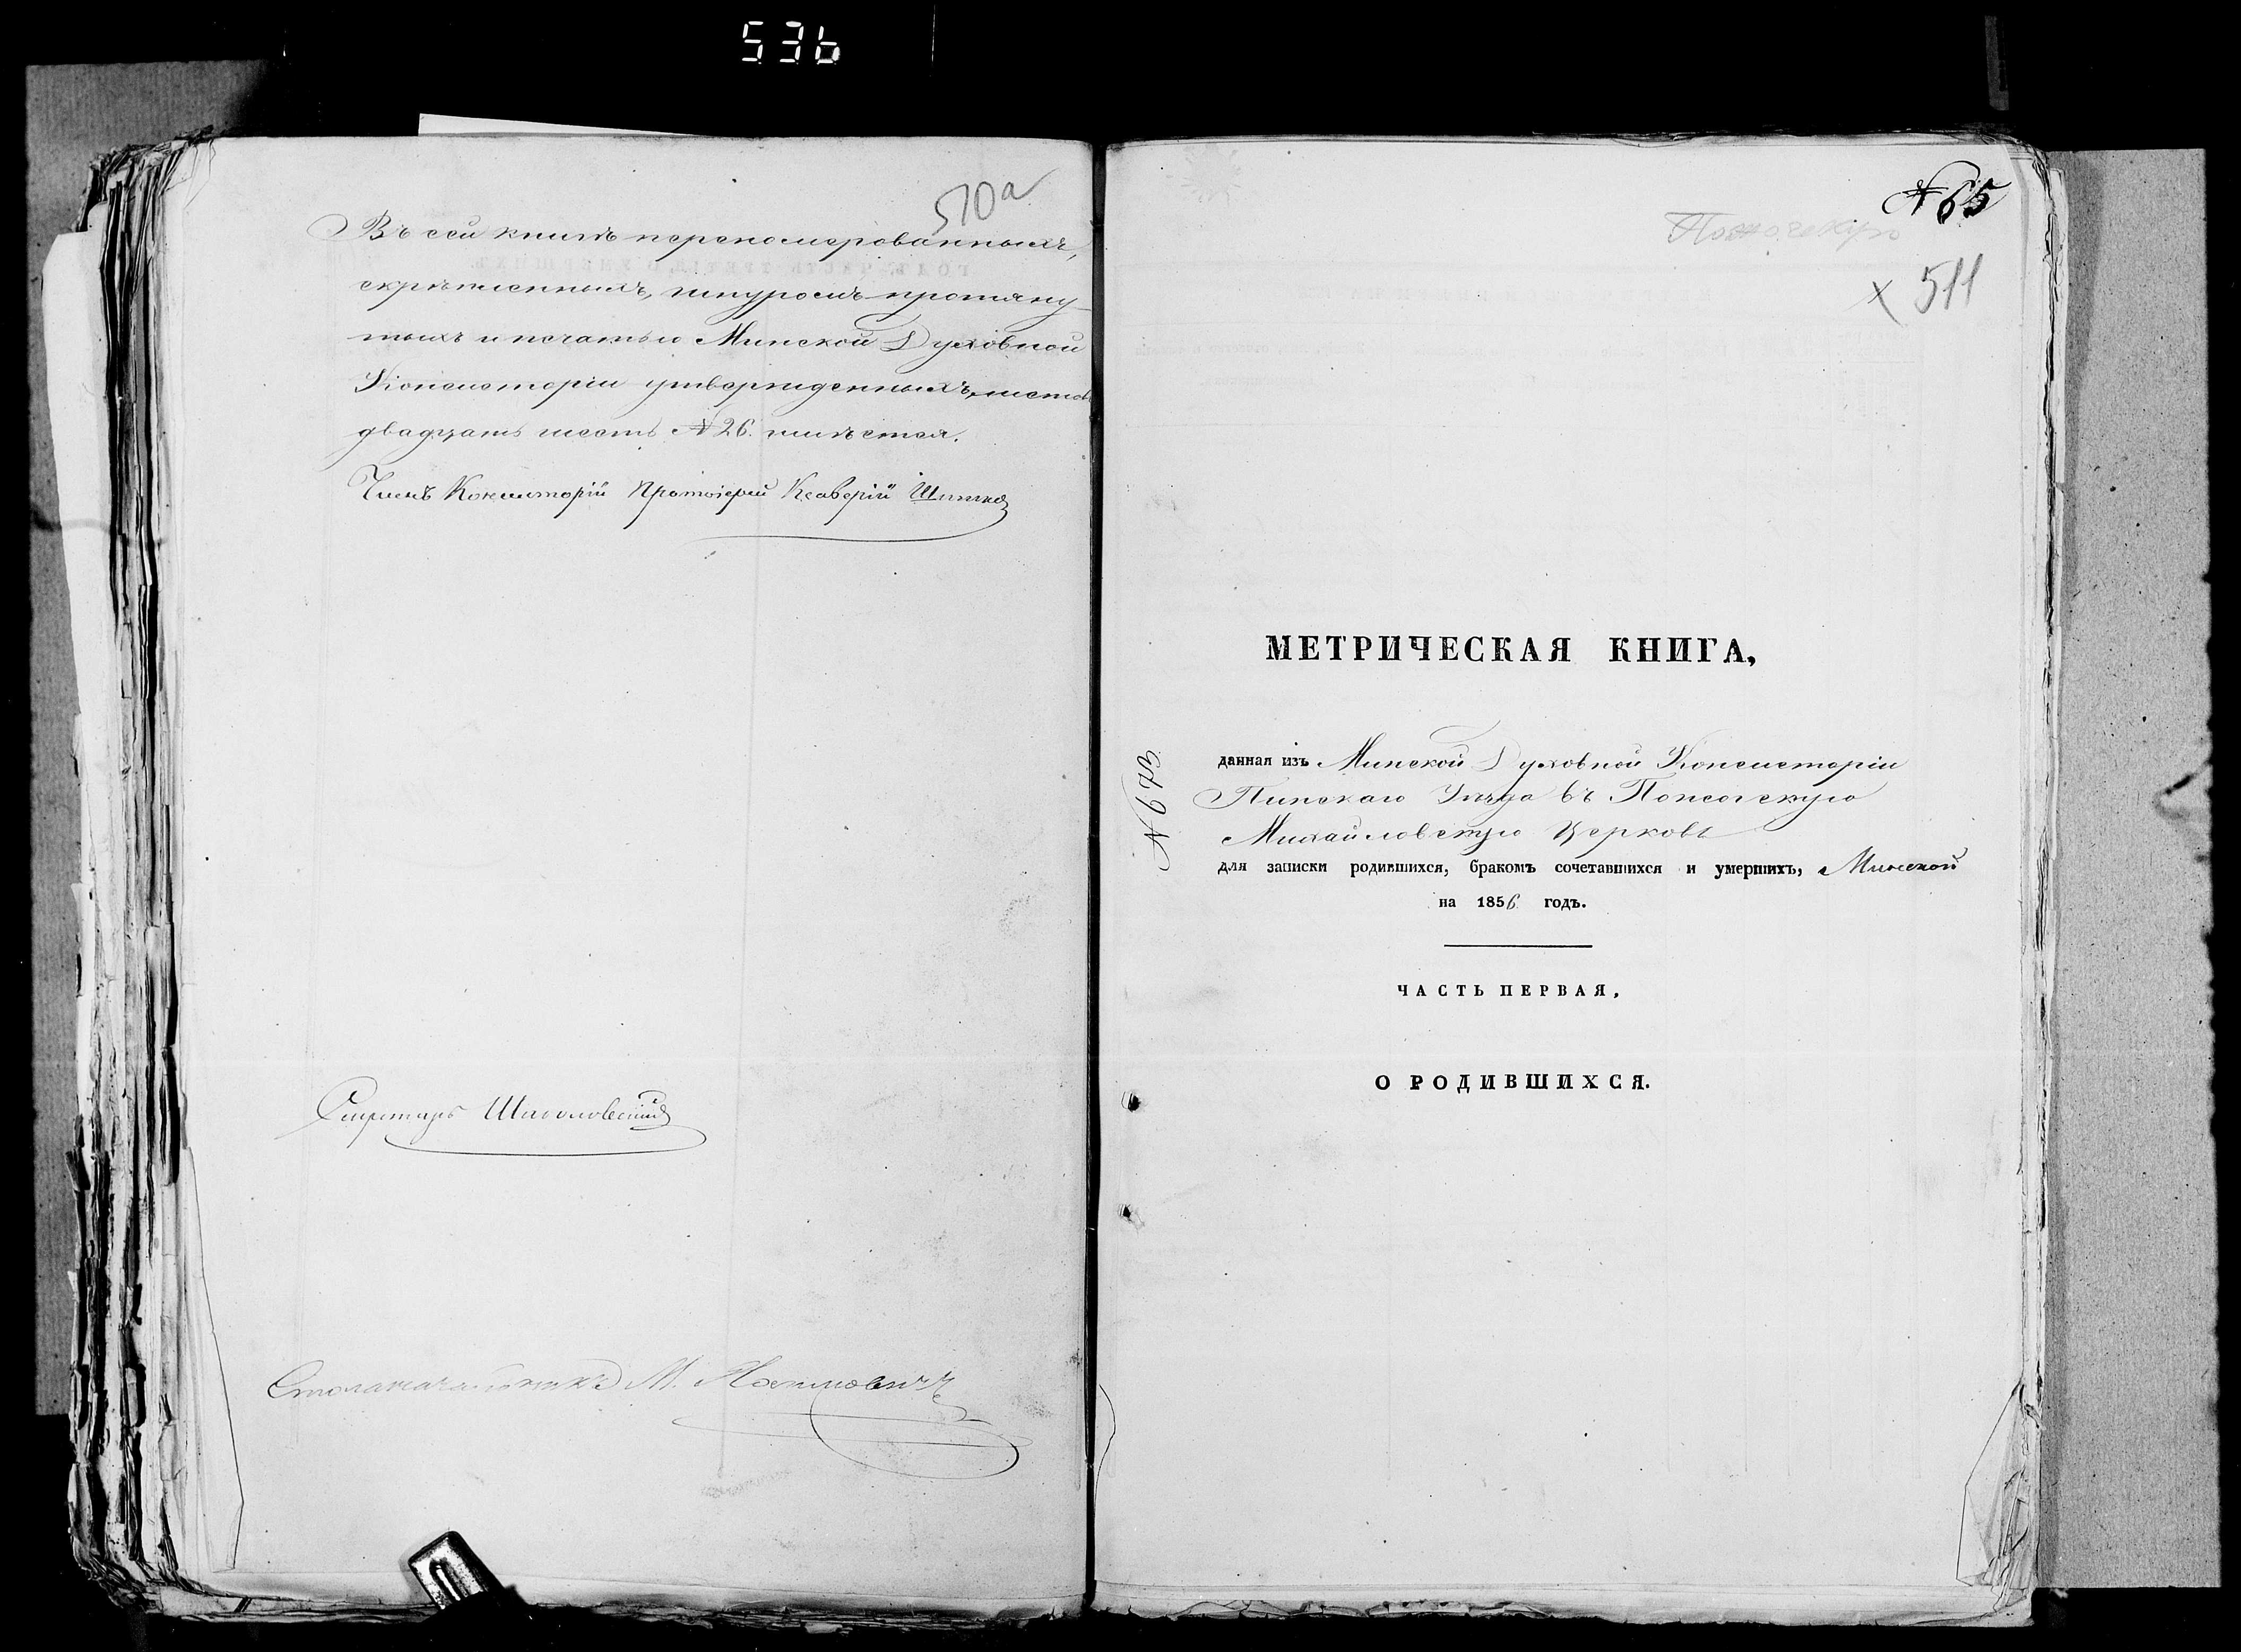 536
510а
Въ сей книгѣ перенумерованныхъ,
скрѣпленныхъ, шнуромъ протяну
тыхъ и печатью Минской Духовной
Консисторіи утвержденныхъ, листовъ
двадцать шесть № 26. имѣется.
Членъ Консисторіи Протоіерей Ксаверій
Секретарь
Столоначальникъ М.
№ 65
x 511
МЕТРИЧЕСКАЯ КНИГА,
№ 673
данная изъ Минской Духовной Консисторіи
Пинскаго Уѣзда въ
Михайловскую Церковь
для записки родившихся, бракомъ сочетавшихся и умершихъ, Минской
на 1856 годъ.
ЧАСТЬ ПЕРВАЯ,
О РОДИВШИХСЯ.